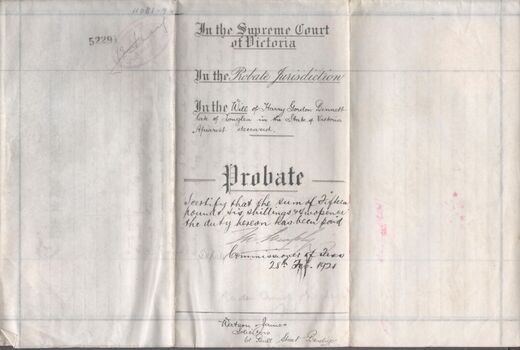 52291
In the Supreme Court
of Victoria
In the Probate Jurisdiction
In the Will of Harry Gordon Bennett
late of in the State of Victoria
Apiarist deceased.
Probate
I certify that the sum of Fifteen
pounds six shillings & twopence
the duty hereon has been paid
Commissioner of Taxes
28th 1921
Solicitors
Street Bendigo